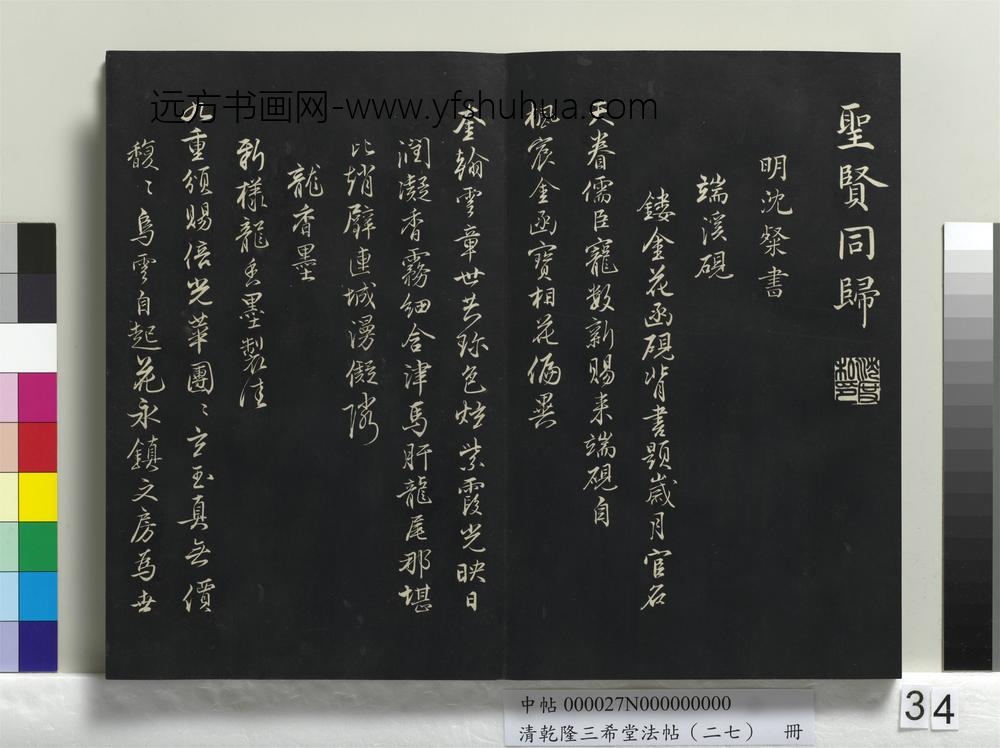 聖賢同歸
明沈粲書
端溪硯
鏤金花函硯背書題歲月官名
天眷儒臣寵數新賜来端硯自
楓宸金函寶相花偏異
奎翰雲章世共珍色炫紫霞光映日
潤凝香霧細含津馬肝龍尾那堪
比趙璧連城漫儗隣
龍香墨
新樣龍香墨製佳
九重頒賜倍光華團〻玄玉真無價
馥〻烏雲自起花永鎮文房為世
远方书画网-www.yfshuhua.com
中帖 000027N000000000
清乾隆三希堂法帖（二七） 冊
34